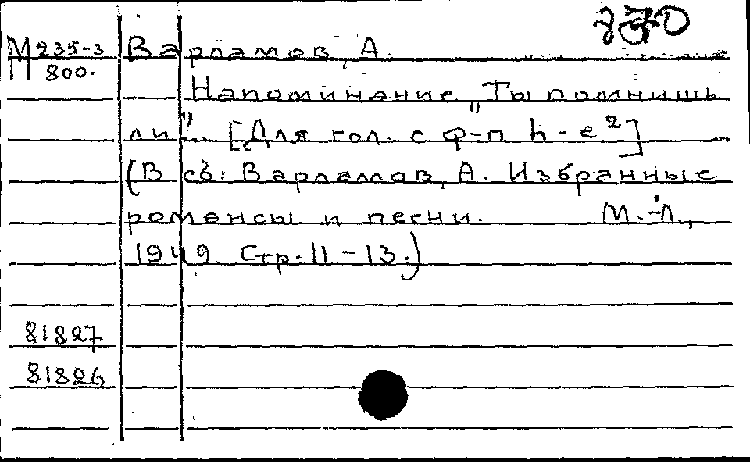 870
М 235-3 Варламов, А.
800.
Напоминание „Ты помнишь
ли"... [Для гол. с ф-п h - e²]
(В сб: Варламов, А. Избранные
романсы и песни. М.-Л.,
1949 Стр. 11-13.)
81827
81826